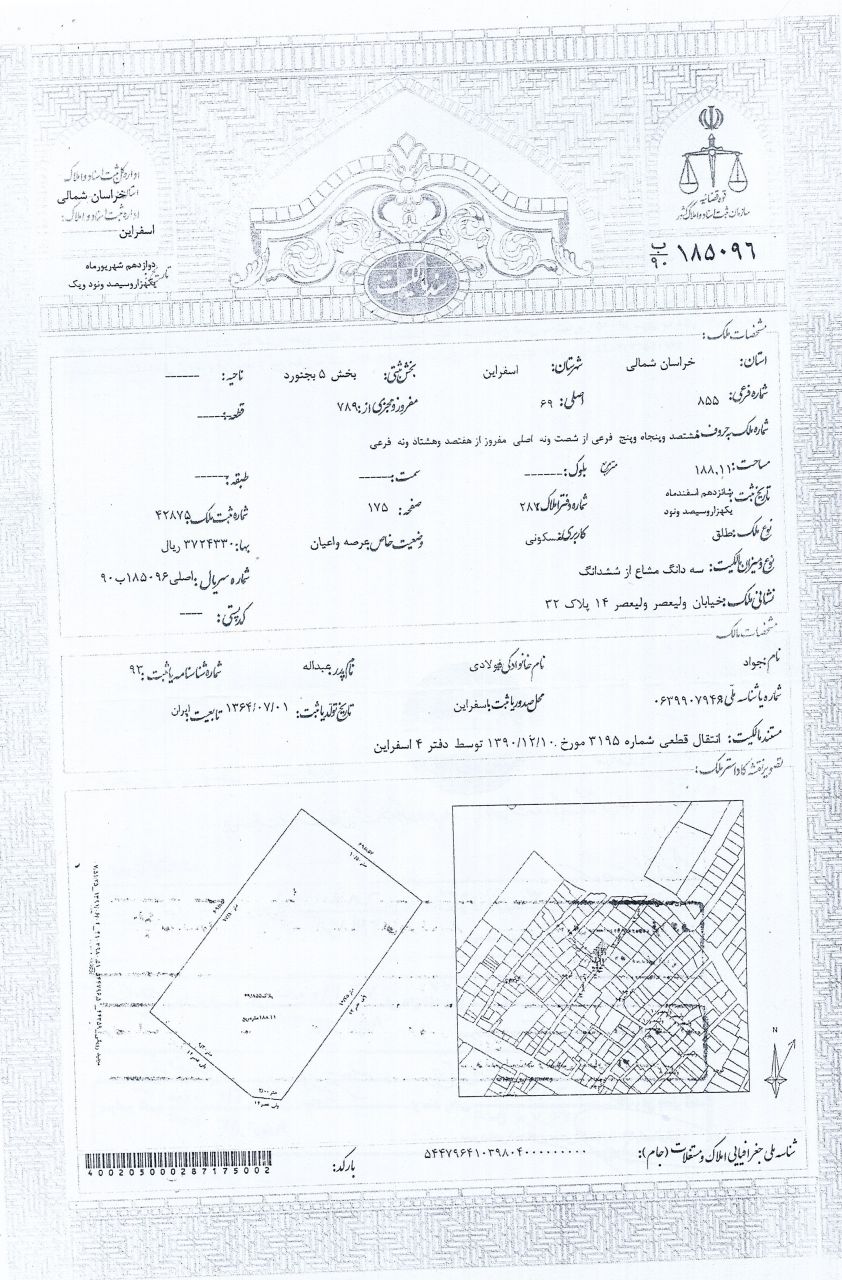 قوه قضائیه
سازمان ثبت اسناد و املاک کشور
۱۸۵۰۹۶ ب/۹۰
اداره کل ثبت اسناد و املاک
استان خراسان شمالی
اداره ثبت اسناد و املاک:
اسفراین
تاریخ: دوازدهم شهریورماه
یکهزاروسیصد ونود ویک
سند مالکیت
مشخصات ملک:
استان: خراسان شمالی شهرستان: اسفراین بخش ثبتی: بخش ۵ بجنورد ناحیه: ------
شماره فرعی: ۸۵۵ اصلی: ۶۹ مفروز و مجزی از: ۷۸۹ قطعه: -----
شماره ملک به حروف: هشتصد وپنجاه وپنج فرعی از شصت ونه اصلی مفروز از هفتصد وهشتاد ونه فرعی
مساحت: ۱۸۸.۱۱ متر مربع بلوک: ------ سمت: ----- طبقه: -----
تاریخ ثبت: شانزدهم اسفندماه یکهزاروسیصد ونود شماره دفتر املاک: ۲۸۷ صفحه: ۱۷۵ شماره ثبت ملک: ۴۲۸۷۵
نوع ملک: طلق کاربری ملک: مسکونی وضعیت خاص: عرصه واعیان بها: ۳۷۲۴۳۳۰ ریال
نوع و میزان مالکیت: سه دانگ مشاع از ششدانگ شماره سریال: اصلی ۱۸۵۰۹۶ ب ۹۰
نشانی ملک: خیابان ولیعصر ولیعصر ۱۴ پلاک ۳۲ کد پستی: ----
مشخصات مالک:
نام: جواد نام خانوادگی: فولادی نام پدر: عبداله شماره شناسنامه یا ثبت: ۹۳
شماره یا شناسه ملی: ۰۶۳۹۹۰۷۹۴۹ محل صدور یا ثبت: اسفراین تاریخ تولد یا ثبت: ۱۳۶۴/۰۷/۰۱ تابعیت: ایران
مستند مالکیت: انتقال قطعی شماره ۳۱۹۵ مورخ ۱۳۹۰/۱۲/۱۰ توسط دفتر ۴ اسفراین
تصویر نقشه کاداستر ملک:
N
شناسه ملی جغرافیایی املاک و مستغلات (جام): ۵۴۴۷۹۶۴۱۰۳۹۸۰۴۰۰۰۰۰۰۰۰۰۰
بارکد:
400205000287175002